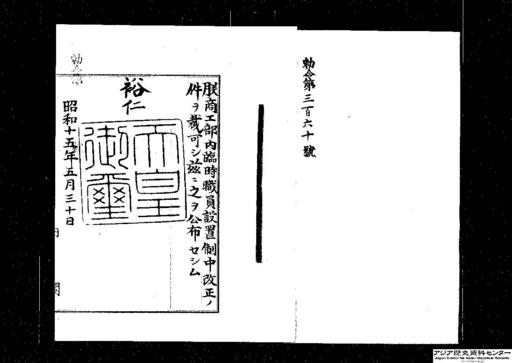 勅令第三百六十號
朕商工部內臨時職員設置制中改正ノ
件ヲ裁可シ茲ニ之ヲ公布セシム
裕仁
天皇御璽
昭和十五年五月三十日
内閣
勅令第
アジア歴史資料センター
Japan Center for Asian Historical Records